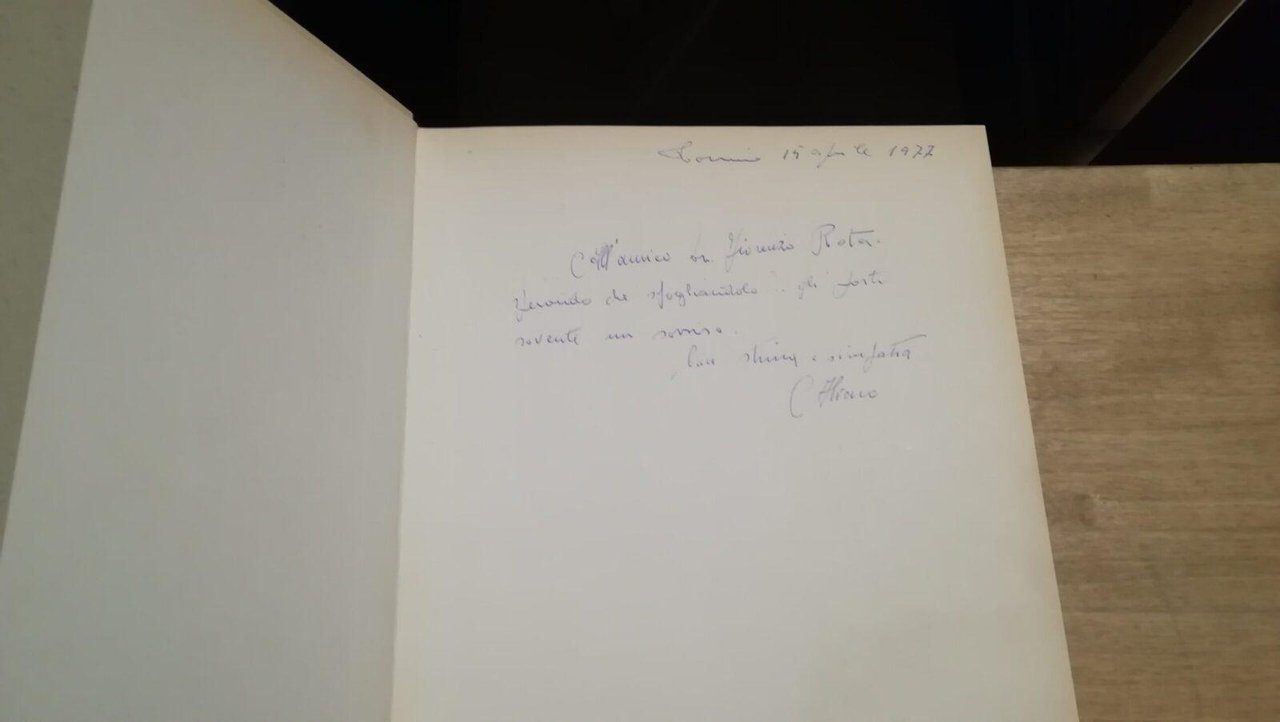 15 aprile 1977
All'amico on. Fiorenzo Rota.
che sfogliandolo gli porti
sovente un sorriso.
Con stima e simpatia